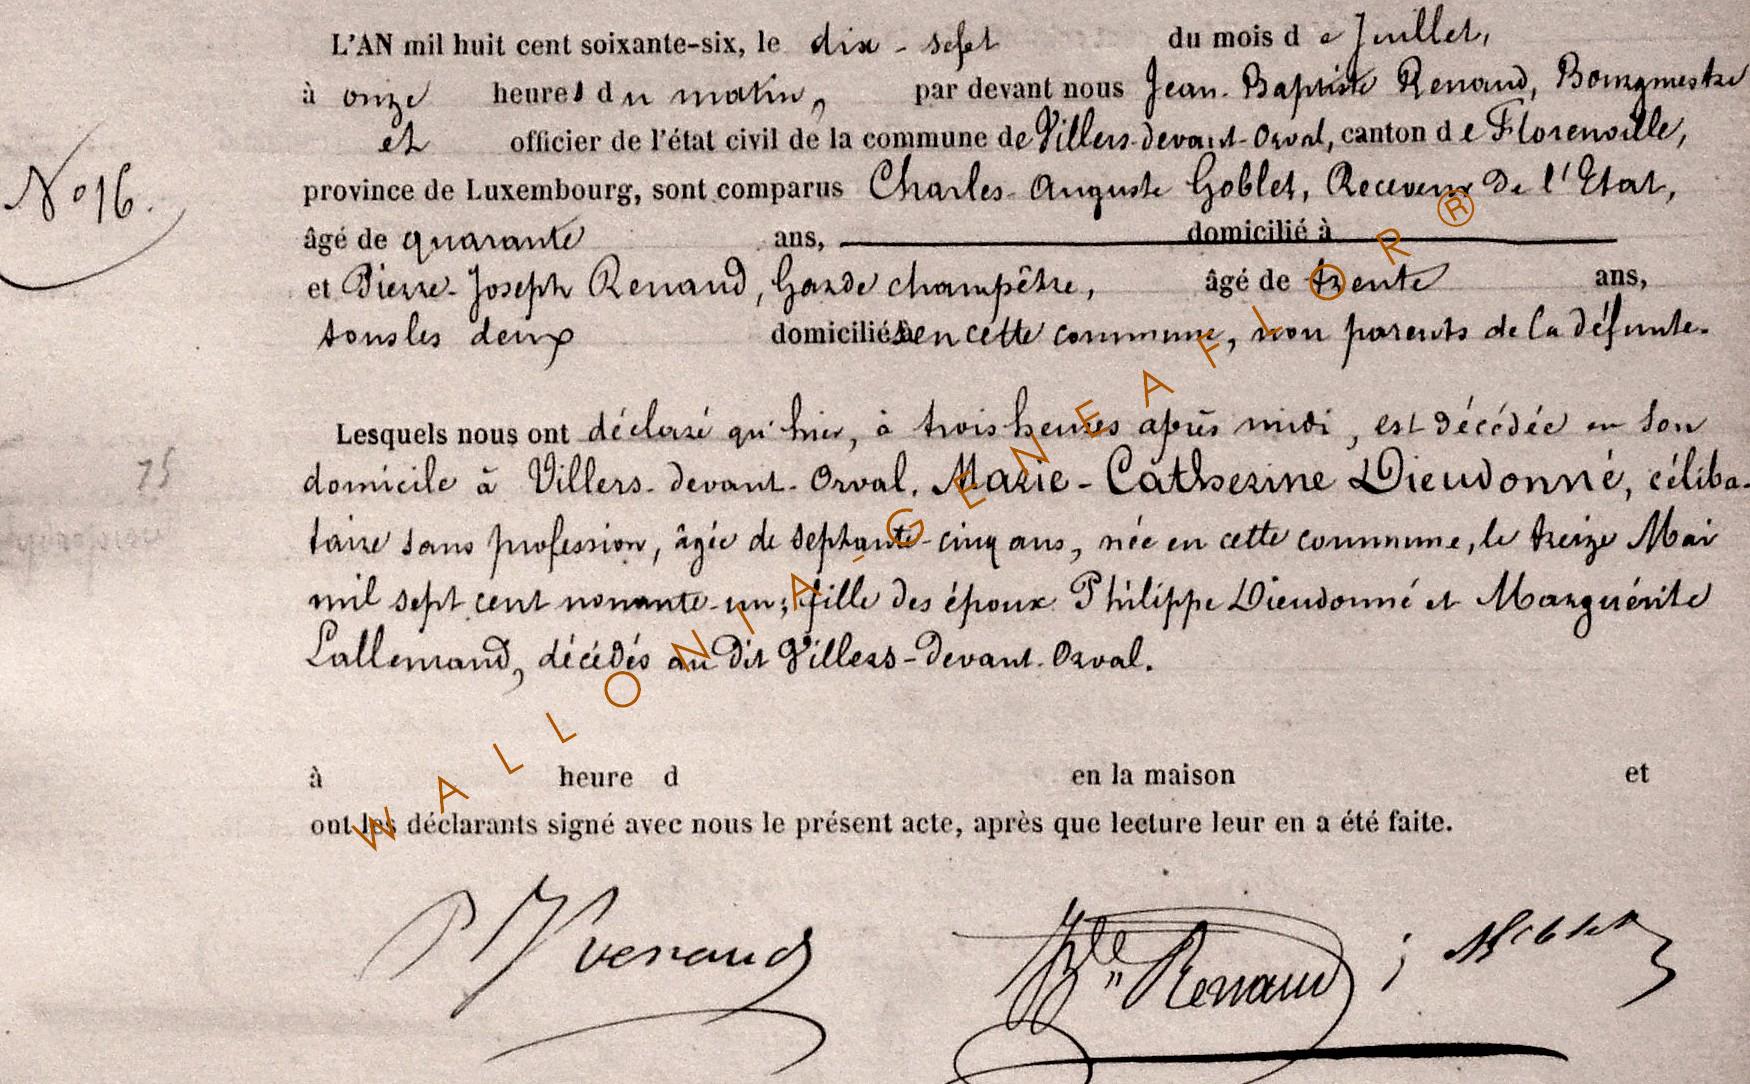 L'AN mil huit cent soixante-six, le dix-sept du mois de Juillet,
à onze heures du matin, par devant nous Jean-Baptiste Renaud, Bourgmestre
et officier de l'état civil de la commune de Villers-devant-Orval, canton de Florenville,
N° 16.
province de Luxembourg, sont comparus Charles-Auguste Goblet, Receveur de l'Etat,
âgé de quarante ans, domicilié à
et Pierre-Joseph Renaud, Garde champêtre, âgé de trente ans,
tous les deux domiciliés en cette commune, non parents de la défunte.
Lesquels nous ont déclaré qu'hier, à trois heures après midi, est décédée en son
75
domicile à Villers-devant-Orval, Marie-Catherine Dieudonné, céliba-
taire sans profession, âgée de septante-cinq ans, née en cette commune, le treize Mai
mil sept cent nonante-un; fille des époux Philippe Dieudonné et Marguérite
Lallemand, décédés au dit Villers-devant-Orval.
à heure d en la maison et
ont les déclarants signé avec nous le présent acte, après que lecture leur en a été faite.
P J renaud
Bte Renaud; Goblet
WALLONIA-GENEAFLOR®